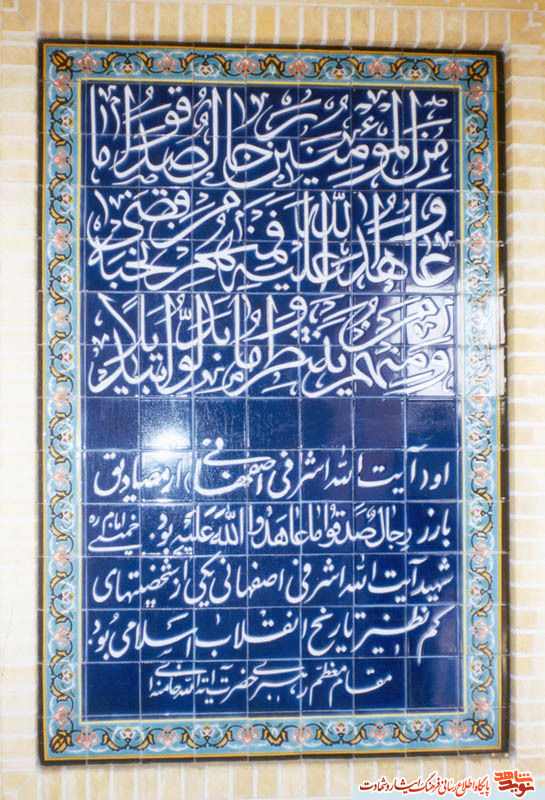 من المؤمنین رجال صدقوا ما
عاهدوا الله علیه فمنهم من قضی نحبه
و منهم من ینتظر و ما بدلوا تبدیلاً
او « آیت الله اشرفی اصفهانی » از مصادیق
بارز رجال صدقوا ما عاهدوا الله علیه بود. امام خمینی ره
شهید آیت الله اشرفی اصفهانی یکی از شخصیتهای
کم نظیر تاریخ انقلاب اسلامی بود
مقام معظم رهبری حضرت آیة الله خامنه‌ای
نوید شاهد پایگاه اطلاع رسانی فرهنگ ایثار و شهادت